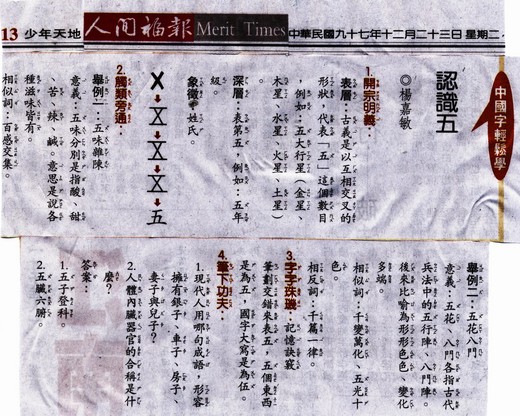 13 少年天地 人間福報 Merit Times 中華民國九十七年十二月二十三日 星期二
中國字輕鬆學
認識五
◎楊嘉敏
1.開宗明義：
表層：古義是以互相交叉的
形狀，代表「五」這個數目
，例如：五大行星（金星、
木星、水星、火星、土星）
。
深層：表第五。例如：五年
級。
象徵：姓氏。
X→X→X→X→五
2.觸類旁通：
舉例一：五味雜陳
意義：五味分別是指酸、甜
、苦、辣、鹹。意思是說各
種滋味皆有。
相似詞：百感交集。
舉例二：五花八門
意義：五花、八門各指古代
兵法中的五行陣、八門陣。
後來比喻為形形色色、變化
多端。
相似詞：千變萬化、五光十
色。
相反詞：千篇一律。
3.字字珠璣：記憶訣竅
筆劃交錯來表五，五個東西
是為五，國字大寫是為伍。
4.筆下功夫：
1.現代人用哪句成語，形容
擁有銀子、車子、房子、
妻子與兒子？
2.人體內臟器官的合稱是什
麼？
答案：
1.五子登科。
2.五臟六腑。